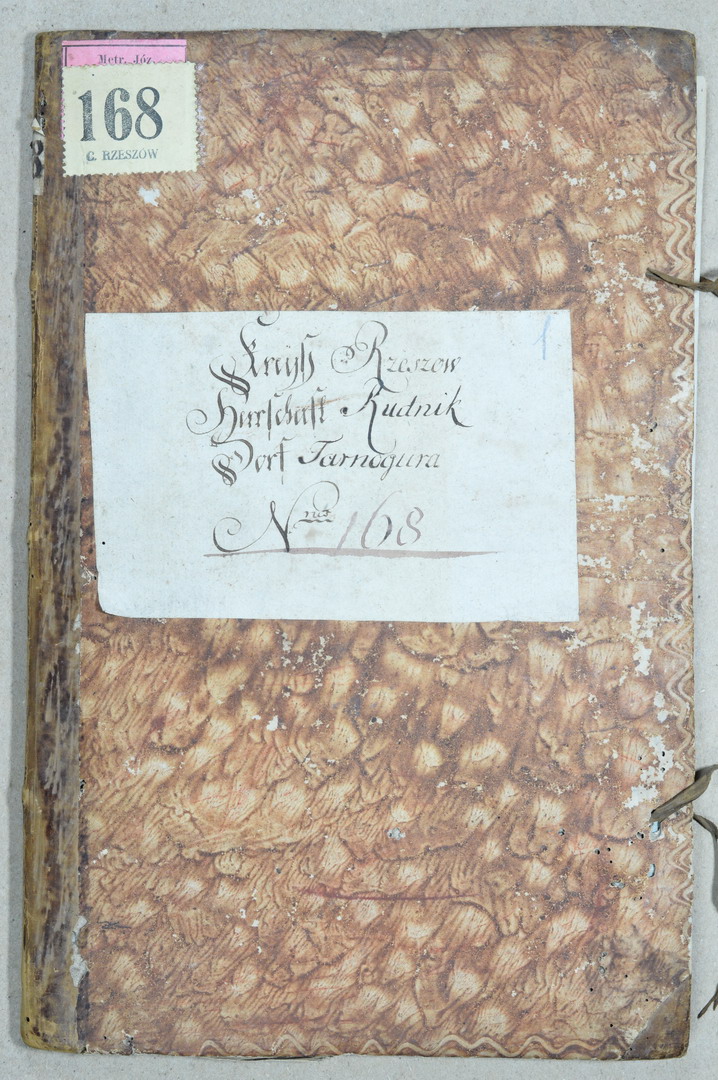 Metr. Józ.
168
C. RZESZÓW
1
Kreyß Rzeszow
Herrschaft Rudnik
Dorf Tarnogura
N.ro 168